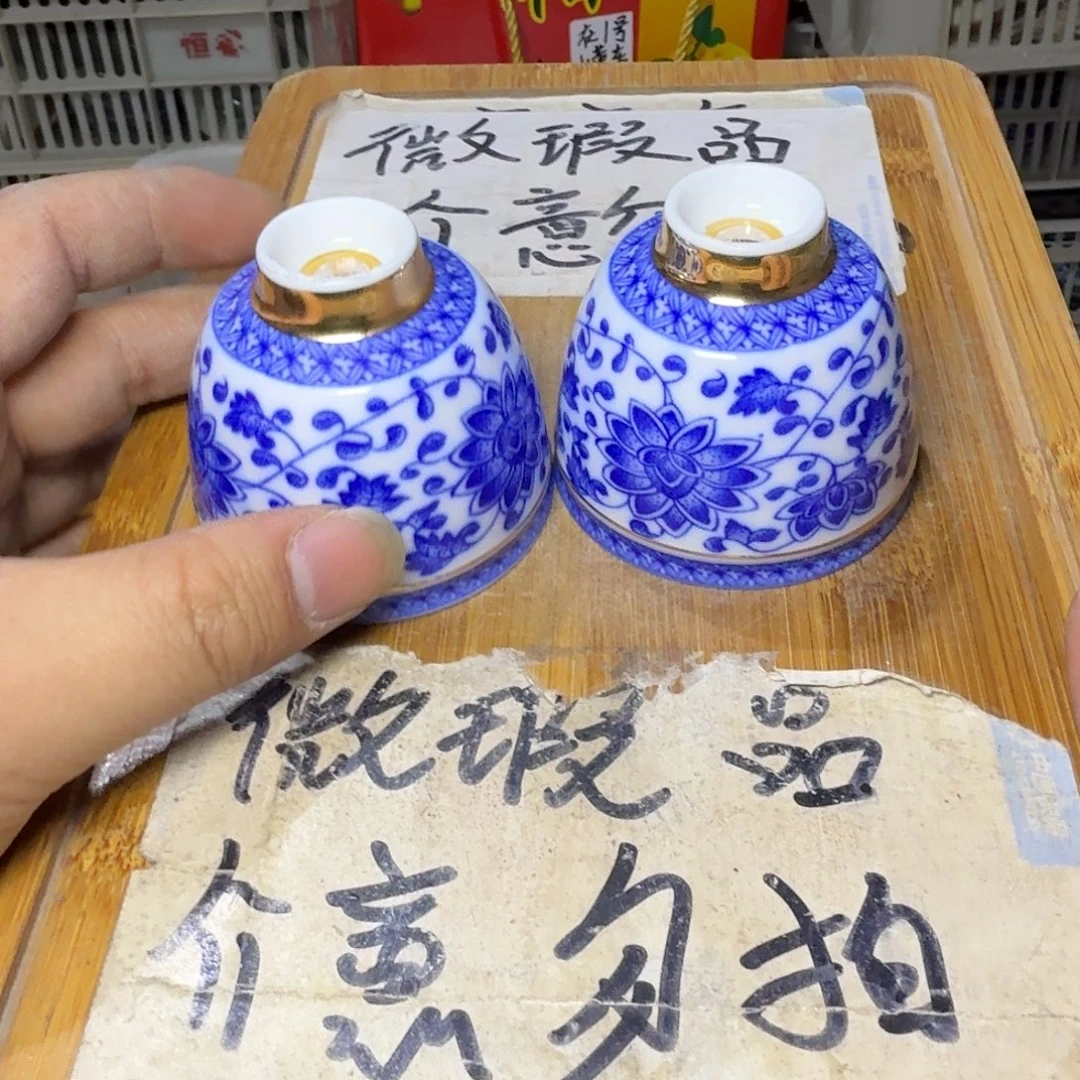 微瑕品
介意勿
微瑕品
介意勿拍